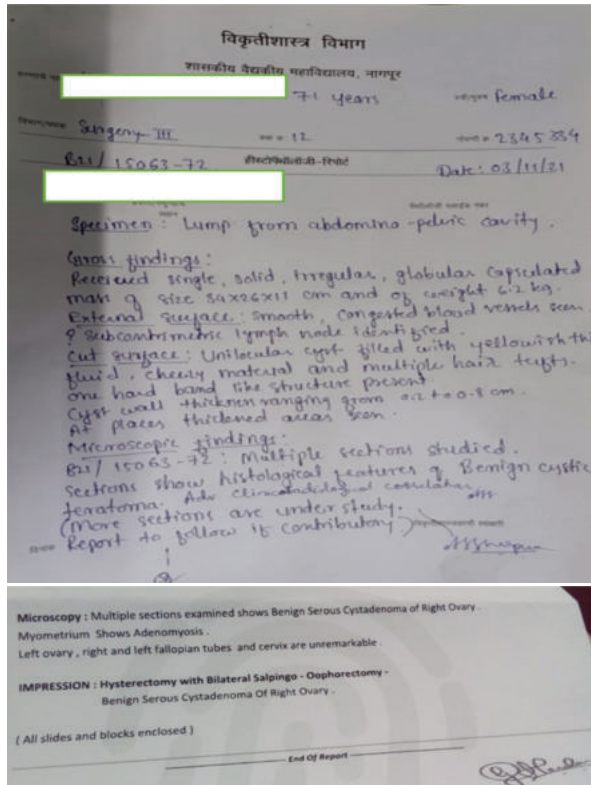 विकृतीशास्त्र विभाग
शासकीय वैद्यकीय महाविद्यालय, नागपूर
71 years female
Surgery III 12 2345334
B21/ 15063-72 हीस्टोपॅथॉलॉजी-रिपोर्ट Date: 03/11/21
Specimen : Lump from abdomino-pelvic cavity .
Gross findings :
Received single, solid, irregular, globular capsulated
mass of size 34x26x11 cm and of weight 6.2 kg.
External surface : smooth, congested blood vessels seen
? subcentimetric lymph node identified .
Cut surface : Unilocular cyst filled with yellowish
fluid, cheesy material and multiple hair tufts.
one hard band like structure present
Cyst wall thickness ranging from 0.2 to 0.8 cm .
At places thickened areas seen .
Microscopic findings :
B21/ 15063-72 : Multiple sections studied.
sections show histological features of Benign cystic
teratoma. Adv
(More sections are under study.
Report to follow if contributory)
Microscopy : Multiple sections examined shows Benign Serous Cystadenoma of Right Ovary .
Myometrium Shows Adenomyosis .
Left ovary , right and left fallopian tubes and cervix are unremarkable .
IMPRESSION : Hysterectomy with Bilateral Salpingo - Oophorectomy -
Benign Serous Cystadenoma Of Right Ovary .
( All slides and blocks enclosed )
End Of Report